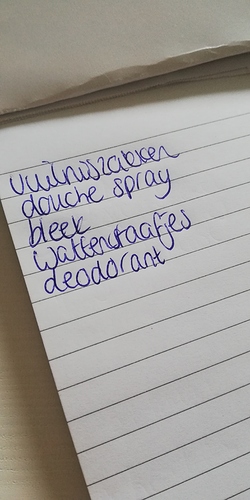 vuilniszakken
douche spray
bleek
wattenstaafjes
deodorant